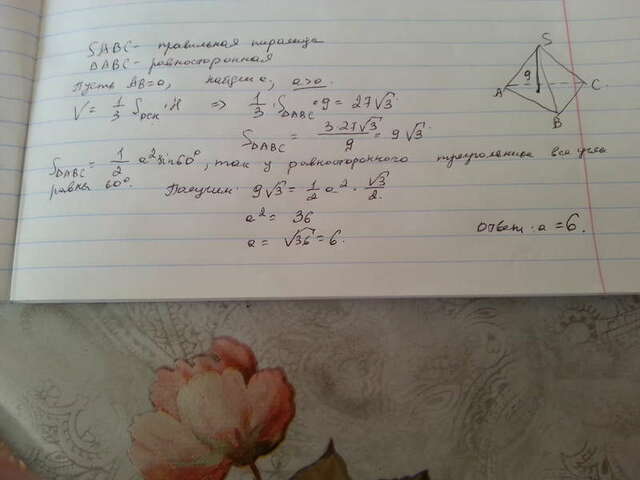 SABC - правильная пирамида
S
△ABC - равносторонняя
9
A
C
B
Пусть AB=a, найдем a, a>0.
V = 1/3 Sосн · H => 1/3 · S△ABC · 9 = 27√3
S△ABC = 3·27√3/9 = 9√3
S△ABC = 1/2 a² sin60°, так у равностороннего треугольника все углы
равны 60°. Получим: 9√3 = 1/2 a² · √3/2.
a² = 36
a = √36 = 6.
Ответ: a = 6.